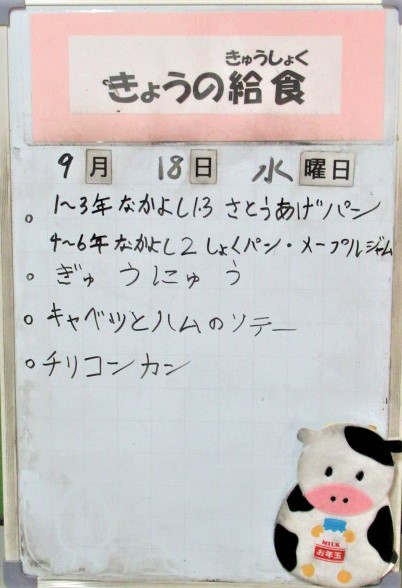 きゅうしょく
きょうの給食
9月 18日 水曜日
1~3年 なかよし1.3 さとうあげパン
4~6年 なかよし2 しょくパン・メープルジャム
ぎゅうにゅう
キャベツとハムのソテー
チリコンカン
MILK
お年玉